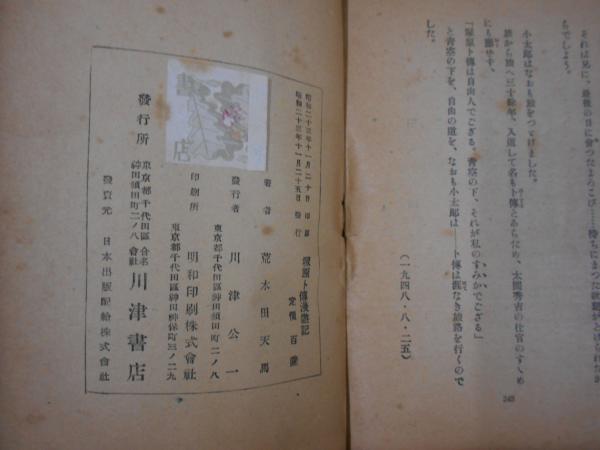 それは兄に、最後の日に會つたよろこび……勝ちにまさる歡聲がとげられたか
らでしよう。
小太郎はなおも旅をつゞけました。
旅から旅へ三十餘年、入道して名も卜傳とあらためて、太閤秀吉の仕官のすゝめ
にも應ぜず、
『塚原卜傳は自由人でござる。靑空の下、それが私のすみかでござる』
と靑空の下を、自由の道を、なおも小太郎は――卜傳は涯なき旅路を行くので
した。
(一九四八・八・二五)
245
昭和二十三年十一月二十日 印刷
昭和二十三年十一月二十五日 發行
塚原卜傳漫遊記
定價 百圓
著者 荒木田天馬
發行者 川津公一
東京都千代田區神田須田町二ノ八
印刷所 明和印刷株式會社
東京都千代田區神田神保町三ノ二九
發行所 東京都千代田區神田須田町二ノ八 合名會社 川津書店
發賣元 日本出版配給株式會社
店